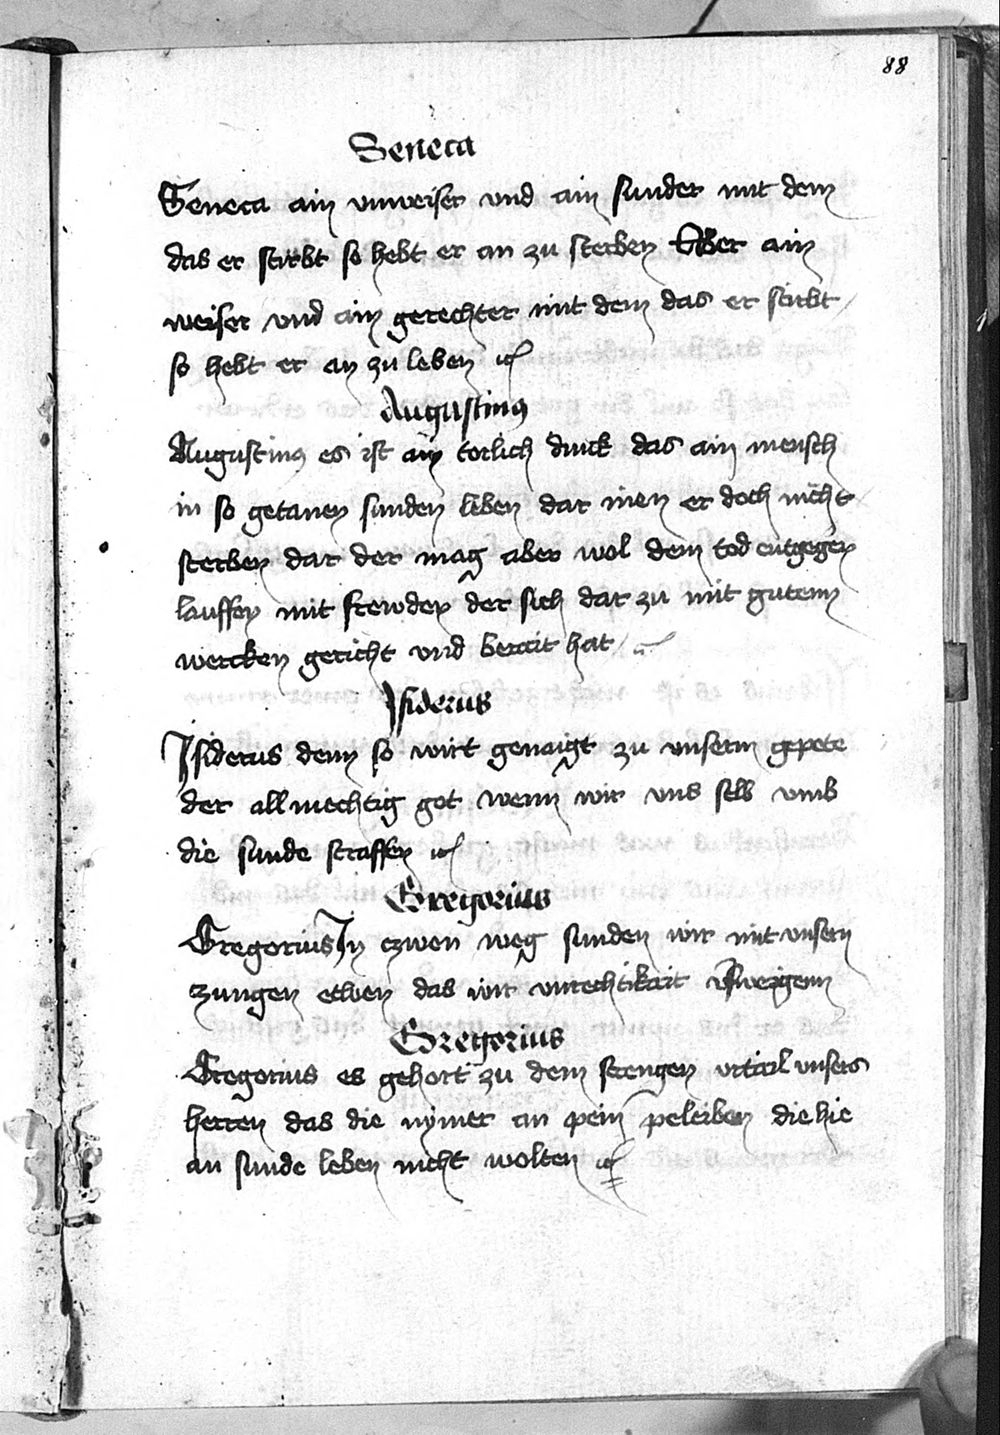 88
Seneca
Seneca ain unweiser vnd ain sunder mit dem
das er stirbt so hebt er an zu sterben Aber ain
weiser vnd ain gerechter mit dem das er stirbt
so hebt er an zu leben
Augustinus
Augustinus es ist ain torlich dinck das ain mensch
in so getanen sunden leben dar inen er doch nicht
sterben dar der mag aber wol dem tod entgegen
lauffen mit frewden der sich dar zu mit gutem
wercken gericht vnd berait hat
Isiderus
Isiderus denn so wirt genaigt zu vnserm gepete
der allmechtig got wenn wir vns selb vmb
die sunde straffen
Gregorius
Gregorius In czwen weg sunden wir mit vnsern
zungen das wir vnrechtikait
Gregorius
Gregorius es gehort zu dem strengen vrtail vnsers
herren das die nymer an pein peleiben die hie
an sunde leben nicht wolten